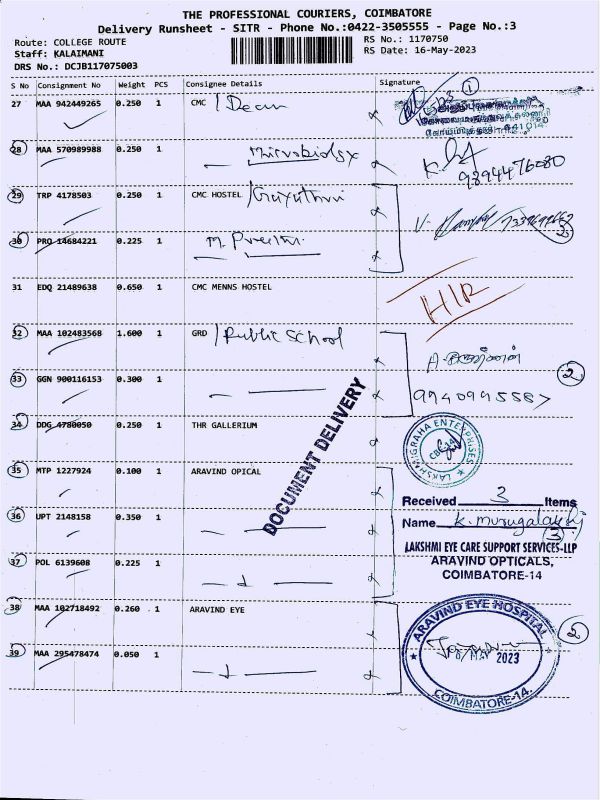 THE PROFESSIONAL COURIERS, COIMBATORE
Delivery Runsheet - SITR - Phone No.:0422-3505555 - Page No.:3
Route: COLLEGE ROUTE
RS No.: 1170750
Staff: KALAIMANI
RS Date: 16-May-2023
DRS No.: DCJB117075003
S No Consignment No Weight PCS Consignee Details Signature
27 MAA 942449265 0.250 1 CMC / Dean
28 MAA 570989988 0.250 1 Microbiology
9894476080
29 TRP 4178503 0.250 1 CMC HOSTEL / Gayathri
30 PRO 14684221 0.225 1 M. Preethi
31 EDQ 21489638 0.650 1 CMC MENNS HOSTEL
32 MAA 102483568 1.600 1 GRD / Public School
33 GGN 900116153 0.300 1
2
34 DDG 4780050 0.250 1 THR GALLERIUM
LAKSHMIGRAHA ENTERPRISES
CBE-14
DOCUMENT DELIVERY
35 MTP 1227924 0.100 1 ARAVIND OPICAL
Received 3 Items
36 UPT 2148158 0.350 1
Name K. murugalakshmi
3
LAKSHMI EYE CARE SUPPORT SERVICES-LLP
37 POL 6139608 0.225 1
ARAVIND OPTICALS,
COIMBATORE-14
38 MAA 102718492 0.260 1 ARAVIND EYE
ARAVIND EYE HOSPITAL
2
39 MAA 295478474 0.050 1
MAY 2023
COIMBATORE-14.